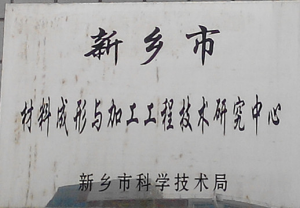 新乡市
材料成形与加工工程技术研究中心
新乡市科学技术局